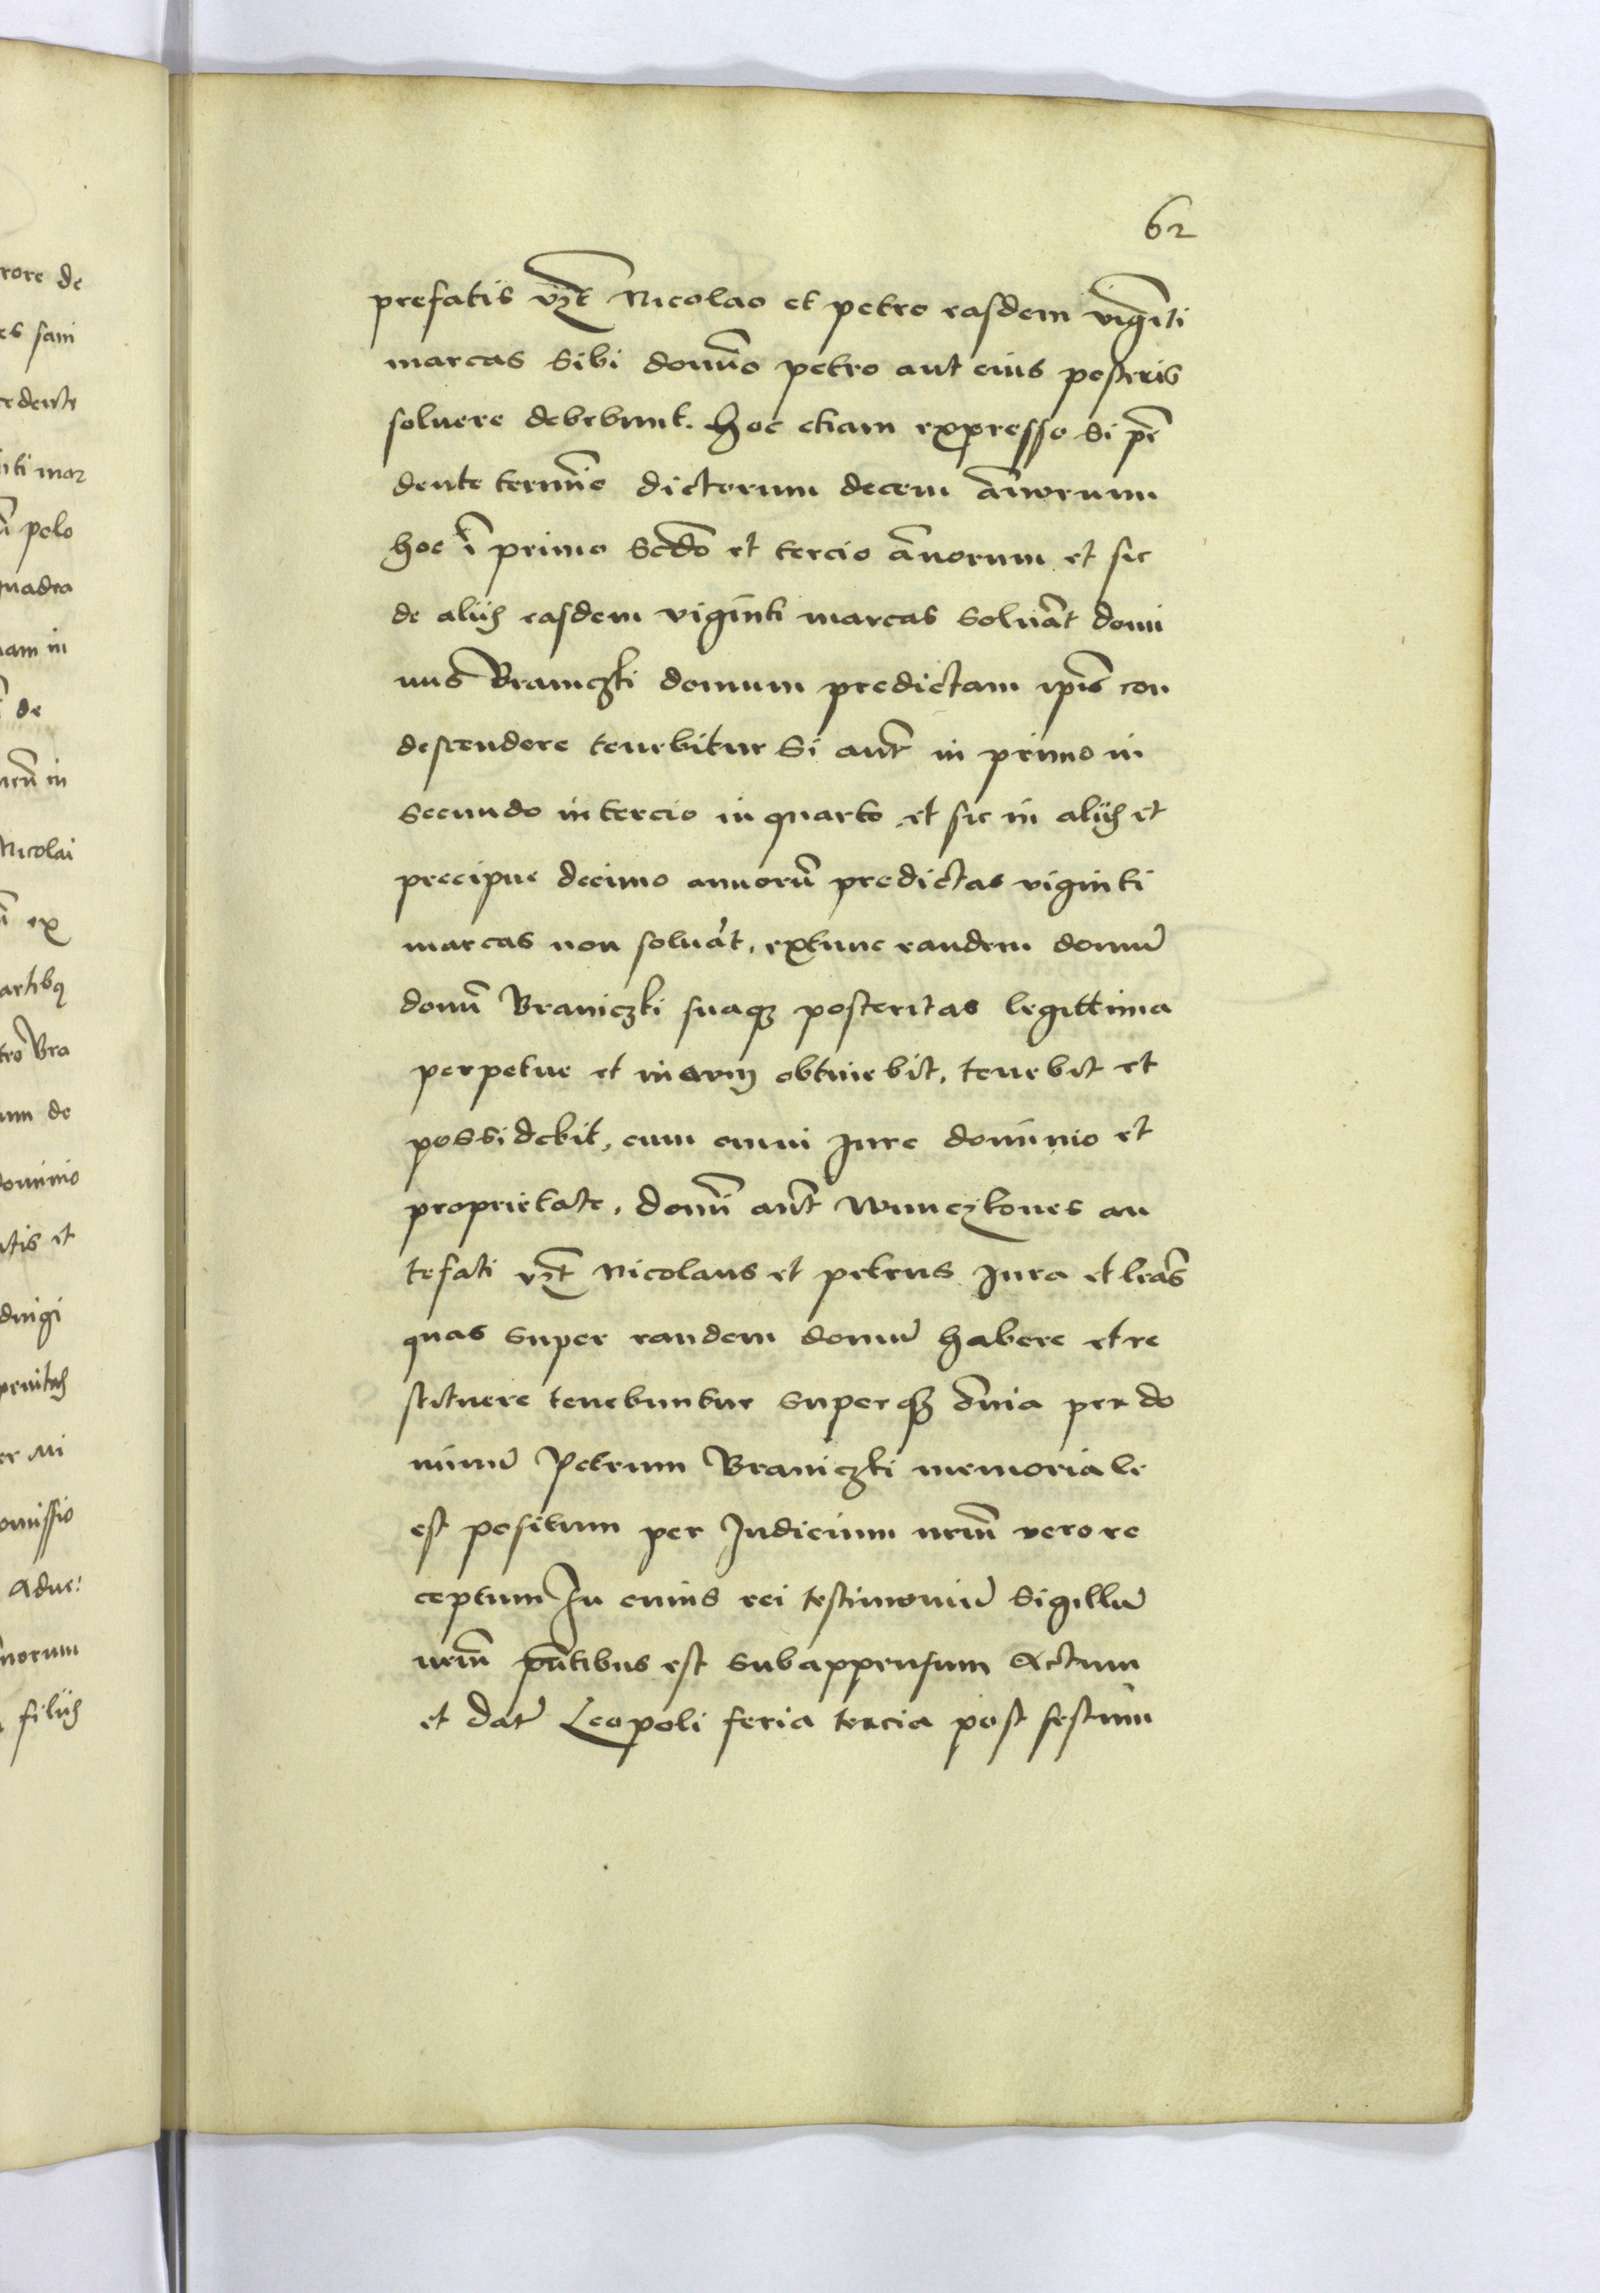 62
prefatis vzt Nicolao et petro easdem viginti
marcas sibi domino petro aut eius posteris
soluere debebunt. hoc etiam expresso si prece
dente termino dictorum decem annorum
hoc in primo secdo et tercio annorum et sic
de aliis easdem viginti marcas soluant domi
nus Braniczki domum predictam ipis con
descendere tenebitur Si aut in primo in
secundo in tercio in quarto et sic in aliis et
precipue decimo annorū predictas viginti
marcas non soluāt, extunc eandem domū
domī Braniczki suaqz posteritas legittima
perpetue et in obtinebit, tenebit et
possidebit, cum omni Jure dominio et
proprietate, domī aut an
tefati vzt Nicolaus et petrus Jura et lras
quas super eandem domū habere et re
stituere tenebuntur super qz omnia per do
minū Petrum Braniczki memoriale
est positum per Judicium nrm vero re
ceptum In cuius rei testimoniū Sigillū
nrm pntibus est subappensum Actum
et datū Leopoli feria tercia post festum
rore de
es sani
cedente
nti mar
polo
quadra
nam in
de
in
Nicolai
ex
artibq
tro Bra
um de
dominio
et
dingi
er Ni
omissio
Adue:
norum
filiis